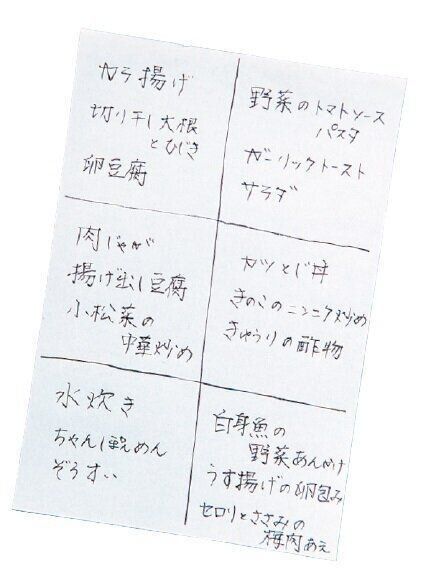 カラ揚げ
切り干し大根
とひじき
卵豆腐
野菜のトマトソース
パスタ
ガーリックトースト
サラダ
肉じゃが
揚げ出し豆腐
小松菜の
中華炒め
カツとじ丼
きのこのニンニク炒め
きゅうりの酢物
水炊き
ちゃんぽんめん
ぞうすい
白身魚の
野菜あんかけ
うす揚げの卵包み
セロリとささみの
梅肉あえ